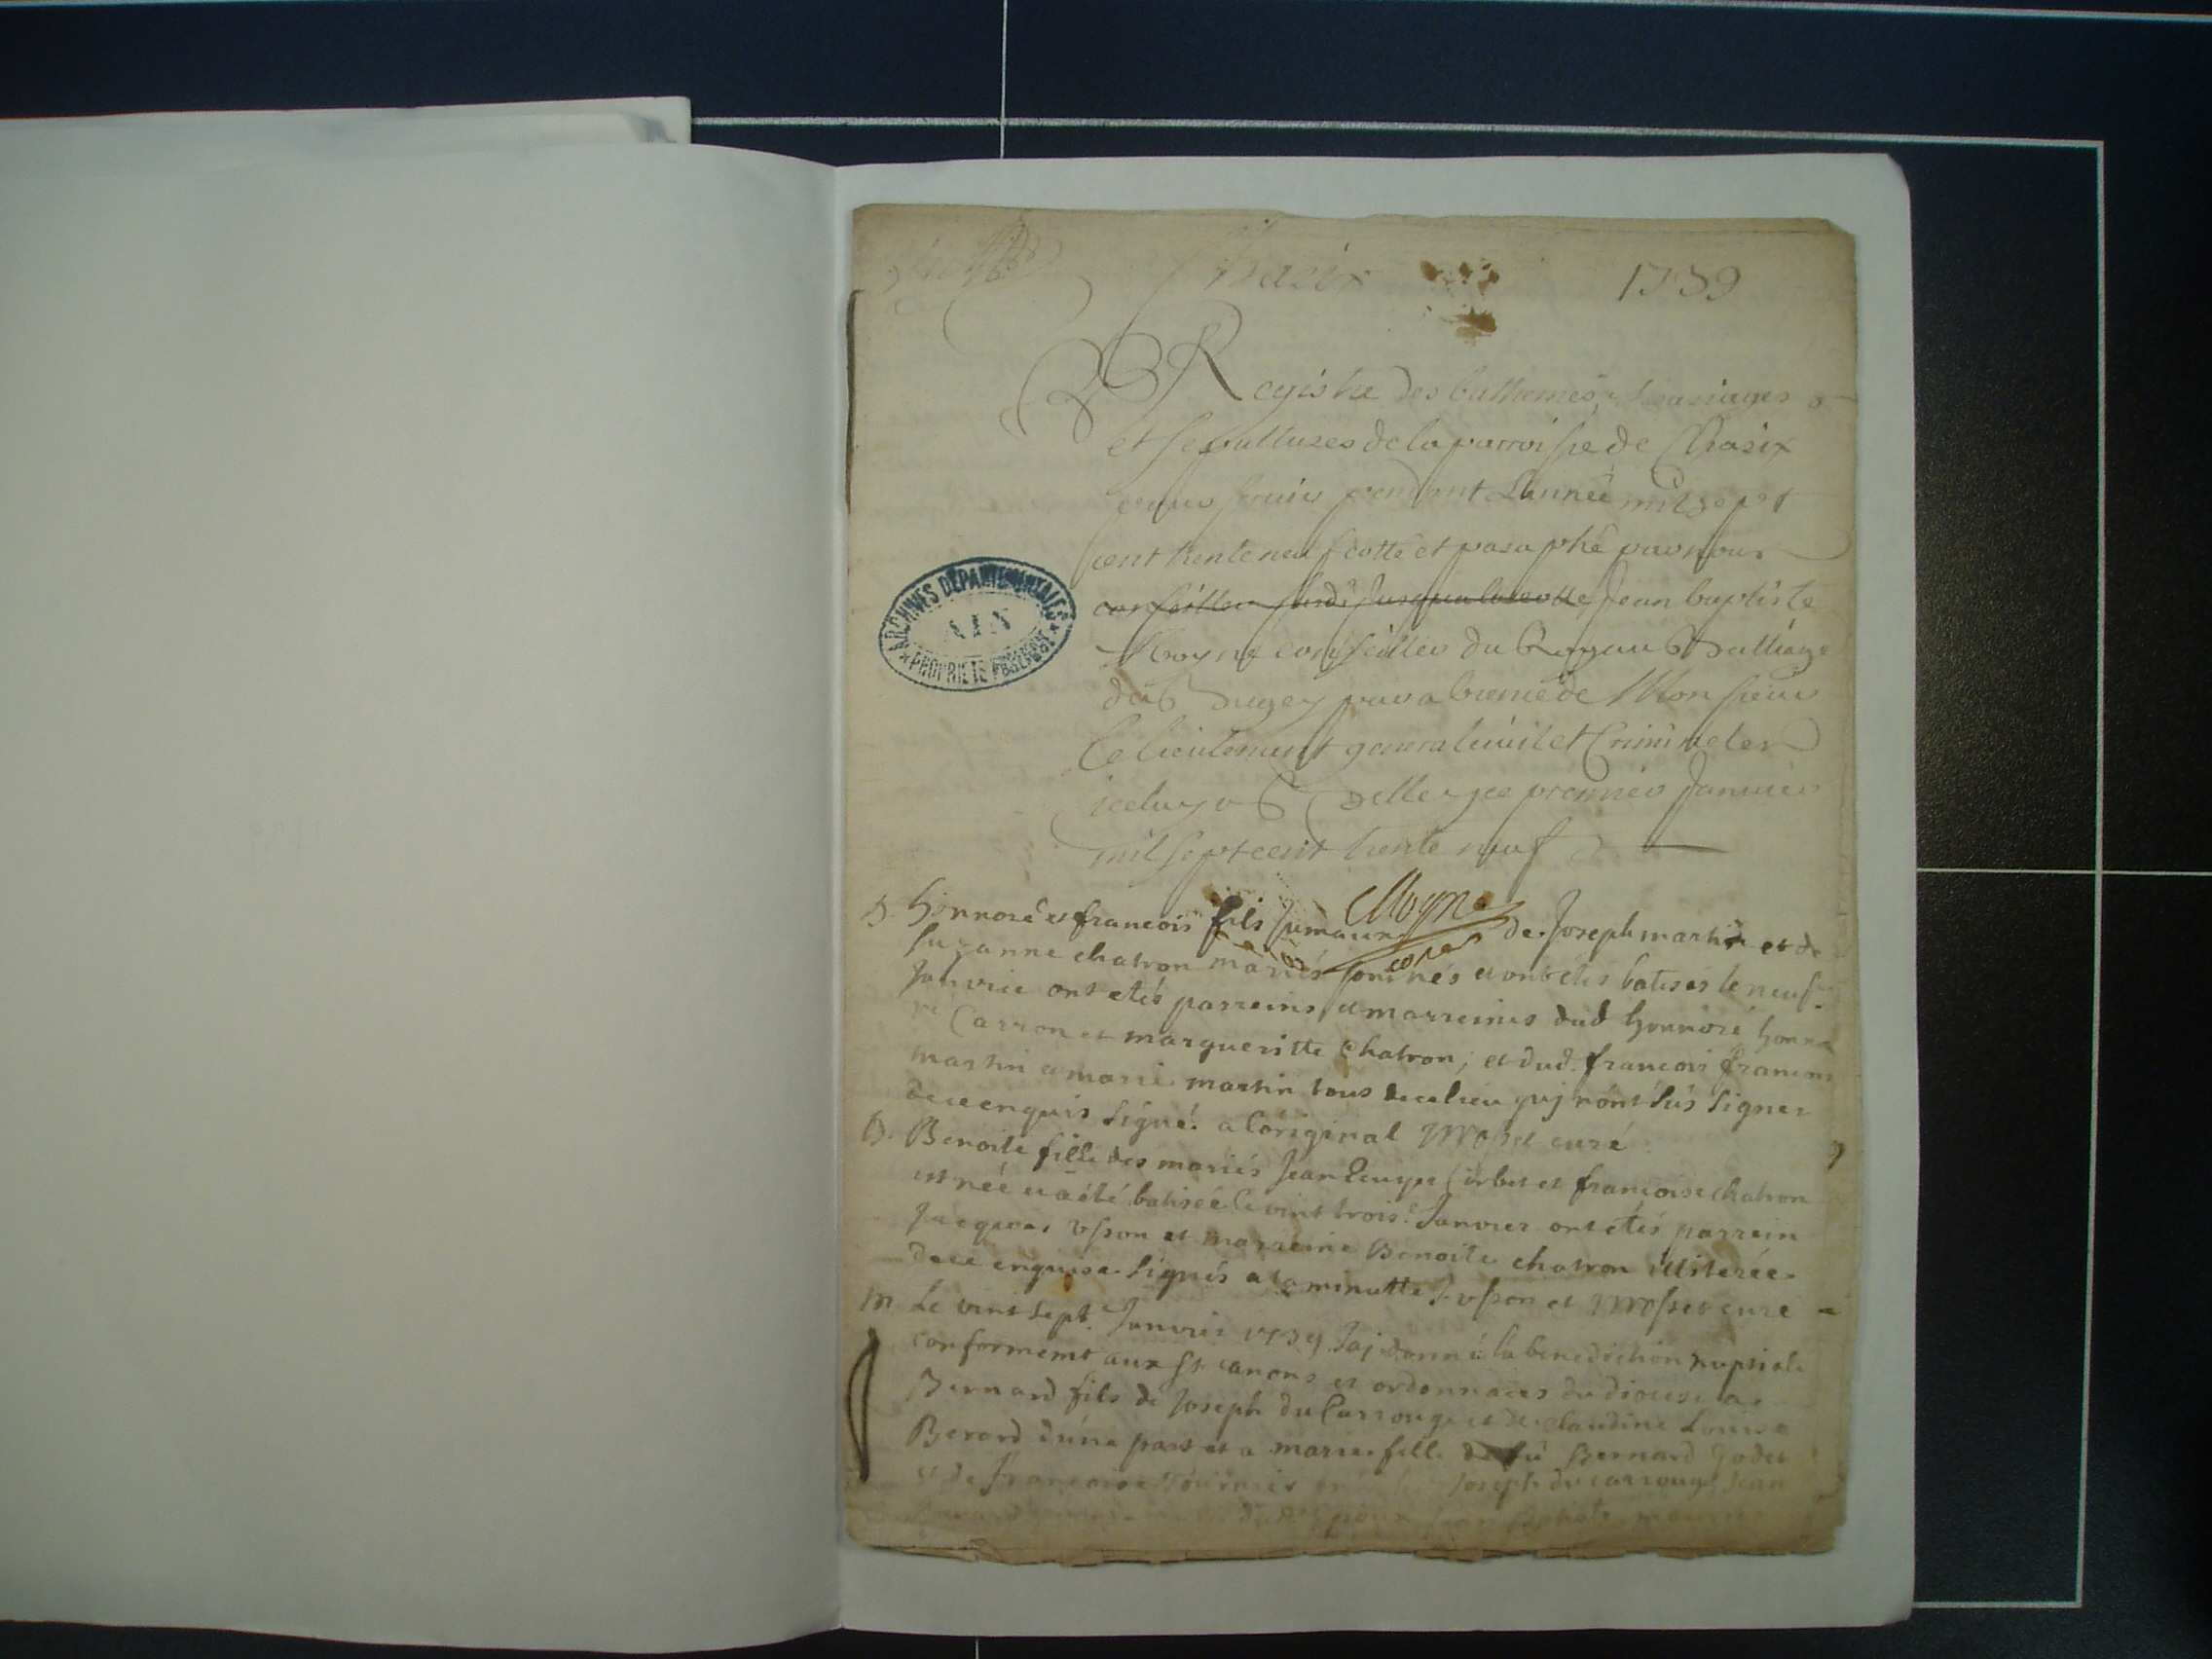 1739
Registre des bathemes, Mariages
et sepultures de la parroisse de
pendant L'année mil sept
cent trente neuf cotté et paraphé par nous
conseiller jusqua la cotte Jean baptiste
Moyne conseiller du Roy au Balliage
du Bugey par absence de Monsieur
le lieutenant general civil et Criminel
iceluy a Belley ce premier Janvier
mil sept cent trente neuf
ARCHIVES DEPARTEMENTALES
AIN
PROPRIETE PUBLIQUE
Moyne
B. honnoré et francois fils Jumaux de Joseph martin et de
Suzanne chatron mariés sont nés et ont étés batisés le neuf
Janvier ont etés parreins et marreines dud honnoré honno
ré Carron et margueritte chatron, et dud. francois francois
martin et marie martin tous de ce lieu quj n'ont sus signer
de ce enquis signé a l'original curé
B. Benoite fille des mariés Jean et francoise chatron
est née et a été batisée le vint trois.e Janvier ont etés parrein
Jacques et marreine Benoite chatron illiterée
de ce enquise signés a la minutte et curé
m Le vint sept.e Janvier 1739 Jaj donné la benediction nuptiale
conformemt aux St canons et ordonnaces du diocese a
Bernard fils de Joseph du Carrouge et de claudine Louise
Berard d'une part et a marie fille de fû Bernard Godet
et de francoise Joseph du carrouge Jean